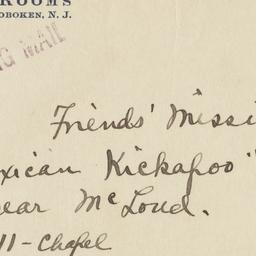 ROOMS
OBOKEN, N. J.
G MAIL
Friends' Missi
xican Kickapoo"
ear McLoud.
11-Chapel